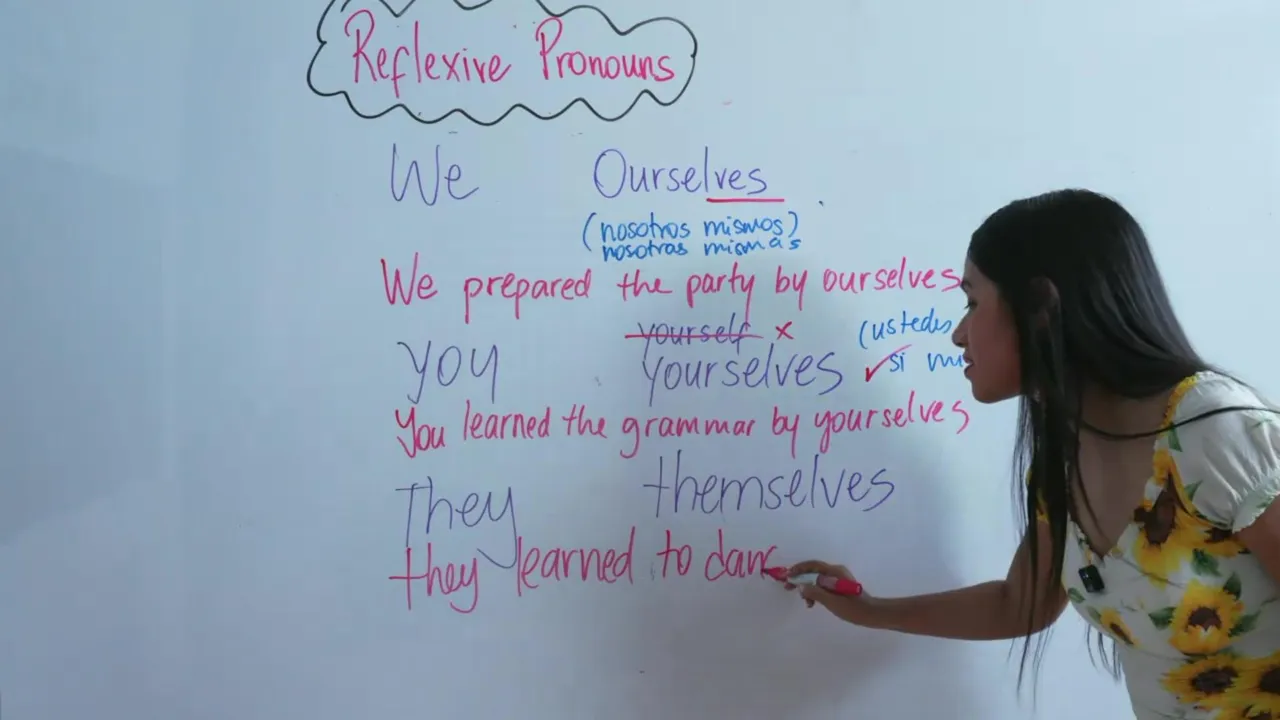 Reflexive Pronouns
We Ourselves
(nosotros mismos)
nosotras mismas
We prepared the party by ourselves
yourself x (ustedes
you yourselves ✓ si
You learned the grammar by yourselves
They themselves
they learned to danc